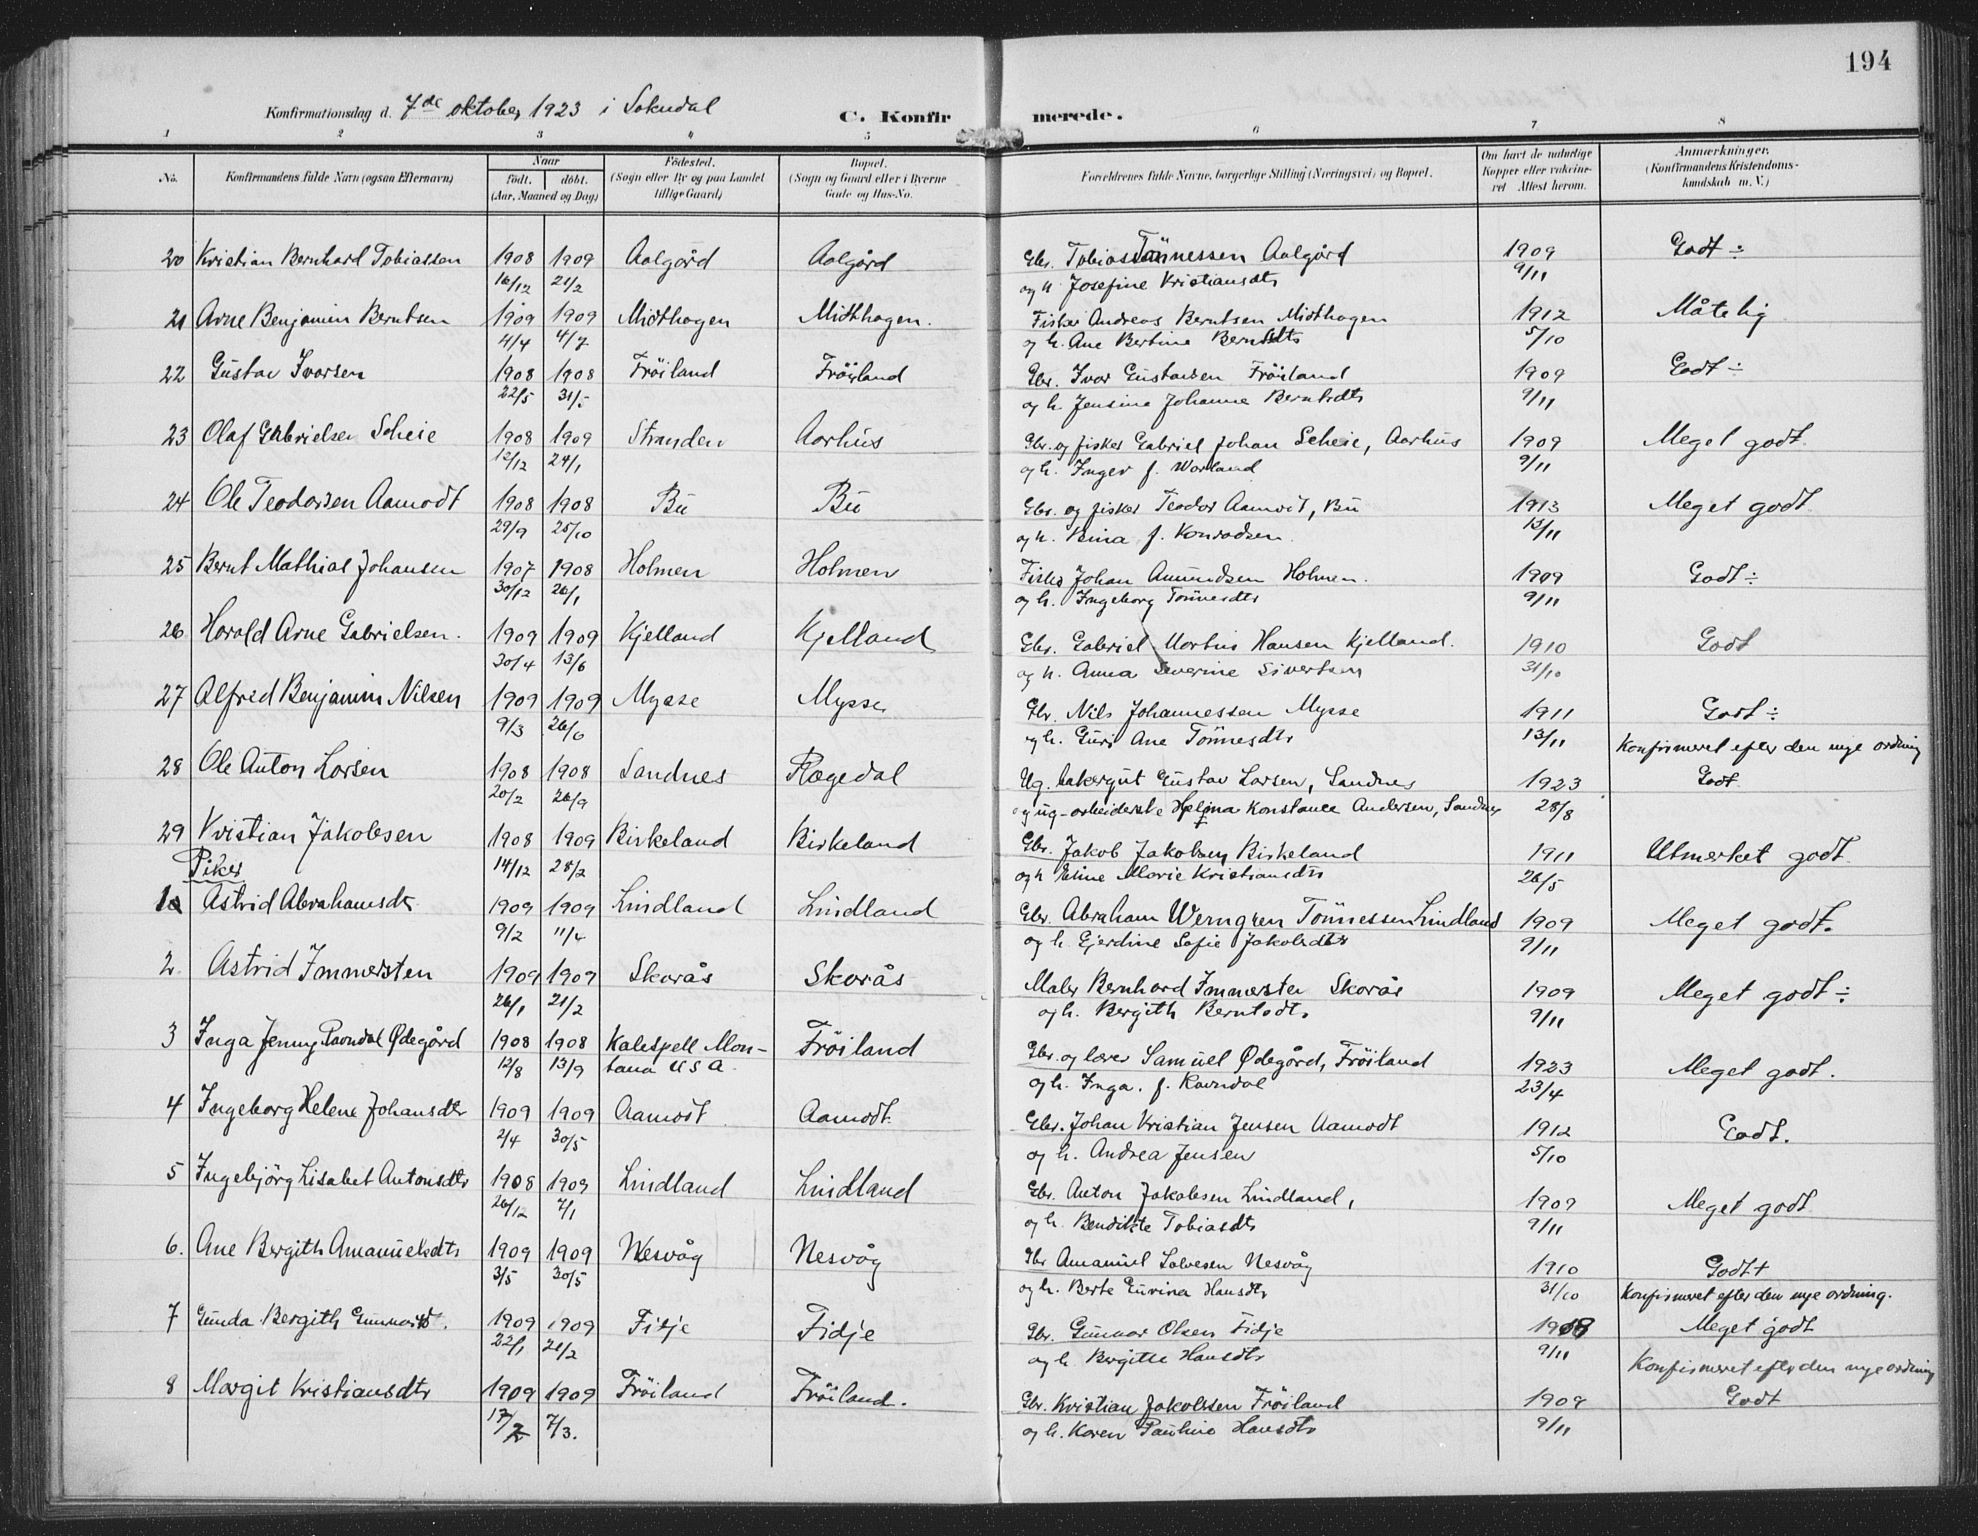 194
Konfirmationsdag d. 7de oktober 1923 i Sokndal C. Konfirmerede.
1 2 3 4 5 6 7 8
No. Konfirmandens fulde Navn (ogsaa Efternavn) Naar født. døbt. (Aar, Maaned og Dag) Födested. (Sogn eller By og paa Landet tillige Gaard) Bopæl. (Sogn og Gaard eller i Byerne Gade og Hus-No. Forældrenes fulde Navne, borgerlige Stilling (Næringsvei) og Bopæl. Om havt de naturlige Kopper eller vakcineret Attest herom. Anmærkninger. (Konfirmandens Kristendomskundskab m. V.)
20 Kristian Bernhard Tobiassen 1908 1909 Aalgård Aalgård Gbr. Tobias Tönnessen Aalgård 1909 Godt ÷
16/12 21/2 og h. Josefine Kristiansdtr 9/11
21 Arne Benjamin Berntsen 1909 1909 Midthagen Midthagen. Fisker Andreas Berntsen Midthagen 1912 Måtelig
4/4 4/7 og h. Ane Bertine Berntsdtr 5/10
22 Gustav Ivarsen 1908 1908 Fröiland Fröiland Gbr. Ivar Gustavsen Fröiland 1909 Godt ÷
22/5 31/5 og h. Jensine Johanne Berntsdtr 9/11
23 Olaf Gabrielsen Scheie 1908 1909 Stranden Aarhus Gbr. og fisker Gabriel Johan Scheie, Aarhus 1909 Meget godt
12/12 24/1 og h. Inger f. Warland 9/11
24 Ole Teodorsen Aamodt 1908 1908 Bu Bu Gbr. og fisker Teodor Aamodt, Bu 1913 Meget godt
29/9 25/10 og h. f. Konradsen. 13/11
25 Bernt Mathias Johansen 1907 1908 Holmen Holmen Fisker Johan Amundsen Holmen. 1909 Godt ÷
30/12 26/1 og h. Ingeborg Tönnesdtr 9/11
26 Harald Arne Gabrielsen. 1909 1909 Kjelland Kjelland Gbr. Gabriel Martin Hansen Kjelland. 1910 Godt
30/4 13/6 og h. Anna Severine Sivertsen 31/10
27 Alfred Benjamin Nilsen 1909 1909 Mysse Mysse Gbr. Nils Johannessen Mysse 1911 Godt ÷
9/3 26/6 og h. Guri Ane Tönnesdtr 13/11 Konfirmeret efter den nye ordning
28 Ole Anton Larsen 1908 1908 Sandnes Rægedal Ug. bakergut Gustav Larsen, Sandnes 1923 Godt
20/2 26/9 og ug. arbeiderske Helena Konstance Andersen, Sandnes 28/8
29 Kristian Jakobsen 1908 1909 Birkeland Birkeland Gbr. Jakob Jakobsen Birkeland 1911 Utmerket godt
14/12 28/2 og h. Eline Marie Kristiansdtr 26/5
Piker
1 Astrid Abrahamsdtr 1909 1909 Lindland Lindland Gbr. Abraham Werngren Tönnessen Lindland 1909 Meget godt.
9/2 11/4 og h. Gjerdine Sofie Jakobsdtr 9/11
2. Astrid Immersten 1909 1909 Skorås Skorås Maler Bernhard Immersten Skorås 1909 Meget godt ÷
26/1 21/2 og h. Bergith Berntsdtr 9/11
3 Inga Jenny Ravndal Ødegård 1908 1908 Kalespell Mon- Fröiland Gbr. og lærer Samuel Ødegård, Fröiland 1923 Meget godt.
12/8 13/9 tana U S A. og h. Inga. f. Ravndal 23/4
4 Ingeborg Helene Johansdtr 1909 1909 Aamodt Aamodt. Gbr. Johan Kristian Jensen Aamodt 1912 Godt.
2/4 30/5 og h. Andrea Jensen 5/10
5 Ingebjörg Lisabet Antonsdtr 1908 1909 Lindland Lindland Gbr. Anton Jakobsen Lindland, 1909 Meget godt
26/12 7/1 og h. Bendikte Tobiasdtr 9/11
6. Ane Bergith Amanuelsdtr 1909 1909 Nesvåg Nesvåg Gbr Amanuel Salvesen Nesvåg 1910 Godt +
3/5 30/5 og h. Berte Gurina Hansdtr 31/10 Konfirmeret efter den nye ordning.
7 Gunda Bergith Gunnarsdt. 1909 1909 Fidje Fidje Gbr. Gunnar Olsen Fidje Meget godt
22/1 21/2 og h. Bergitte Hansdtr 9/11 Konfirmeret efter den nye ordning
8 Margit Kristiansdtr 1909 1909 Fröiland Fröiland. Gbr. Kristian Jakobsen Fröiland 1909 Godt
17/2 7/3. og h. Karen Pauline Hansdtr 9/11